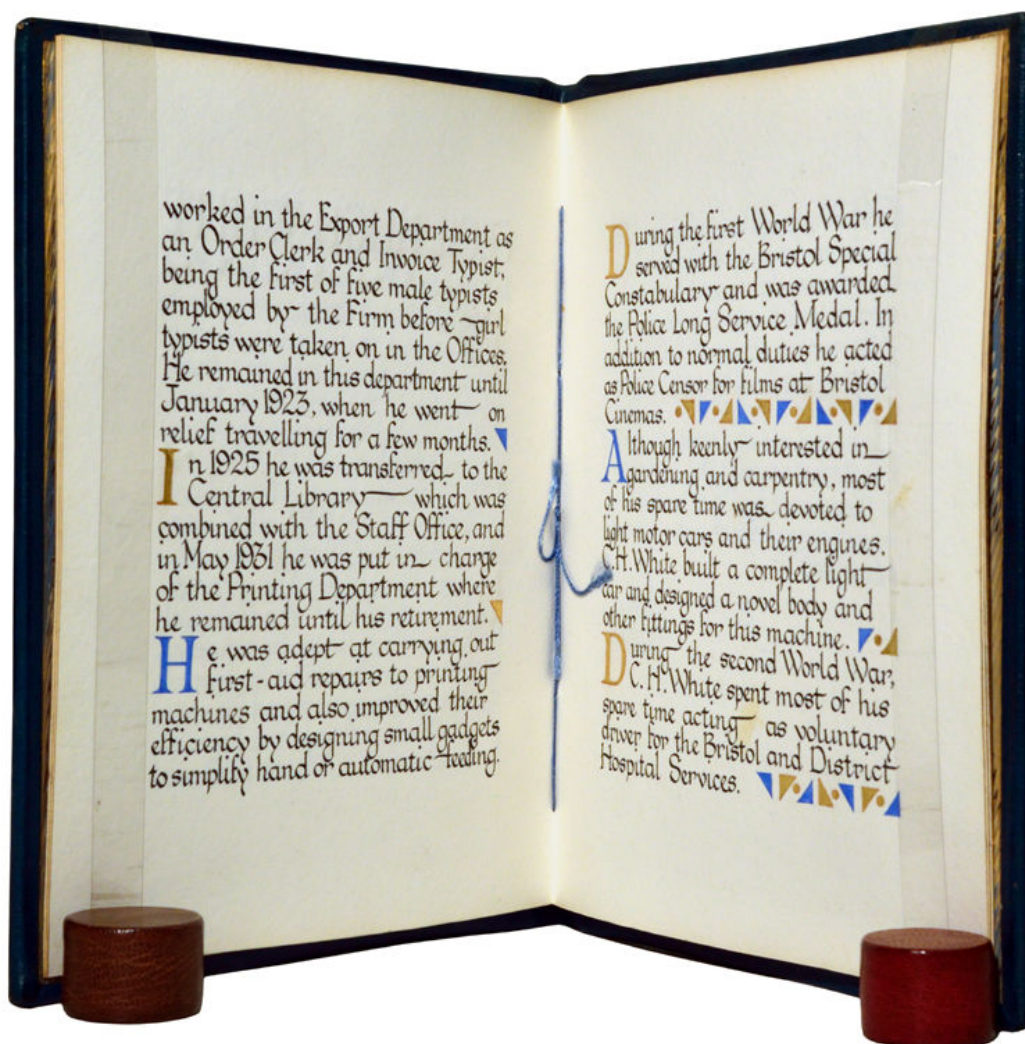 worked in the Export Department as
an Order Clerk and Invoice Typist,
being the first of five male typists
employed by the Firm before girl
typists were taken on in the Offices.
He remained in this department until
January 1923, when he went on
relief travelling for a few months.
In 1925 he was transferred to the
Central Library which was
combined with the Staff Office, and
in May 1931 he was put in charge
of the Printing Department where
he remained until his retirement.
He was adept at carrying out
first-aid repairs to printing
machines and also improved their
efficiency by designing small gadgets
to simplify hand or automatic feeding.
During the first World War he
served with the Bristol Special
Constabulary and was awarded
the Police Long Service Medal. In
addition to normal duties he acted
as Police Censor for films at Bristol
Cinemas.
Although keenly interested in
gardening and carpentry, most
of his spare time was devoted to
light motor cars and their engines.
C.H. White built a complete light
car and designed a novel body and
other fittings for this machine.
During the second World War,
C. H. White spent most of his
spare time acting as voluntary
driver for the Bristol and District
Hospital Services.